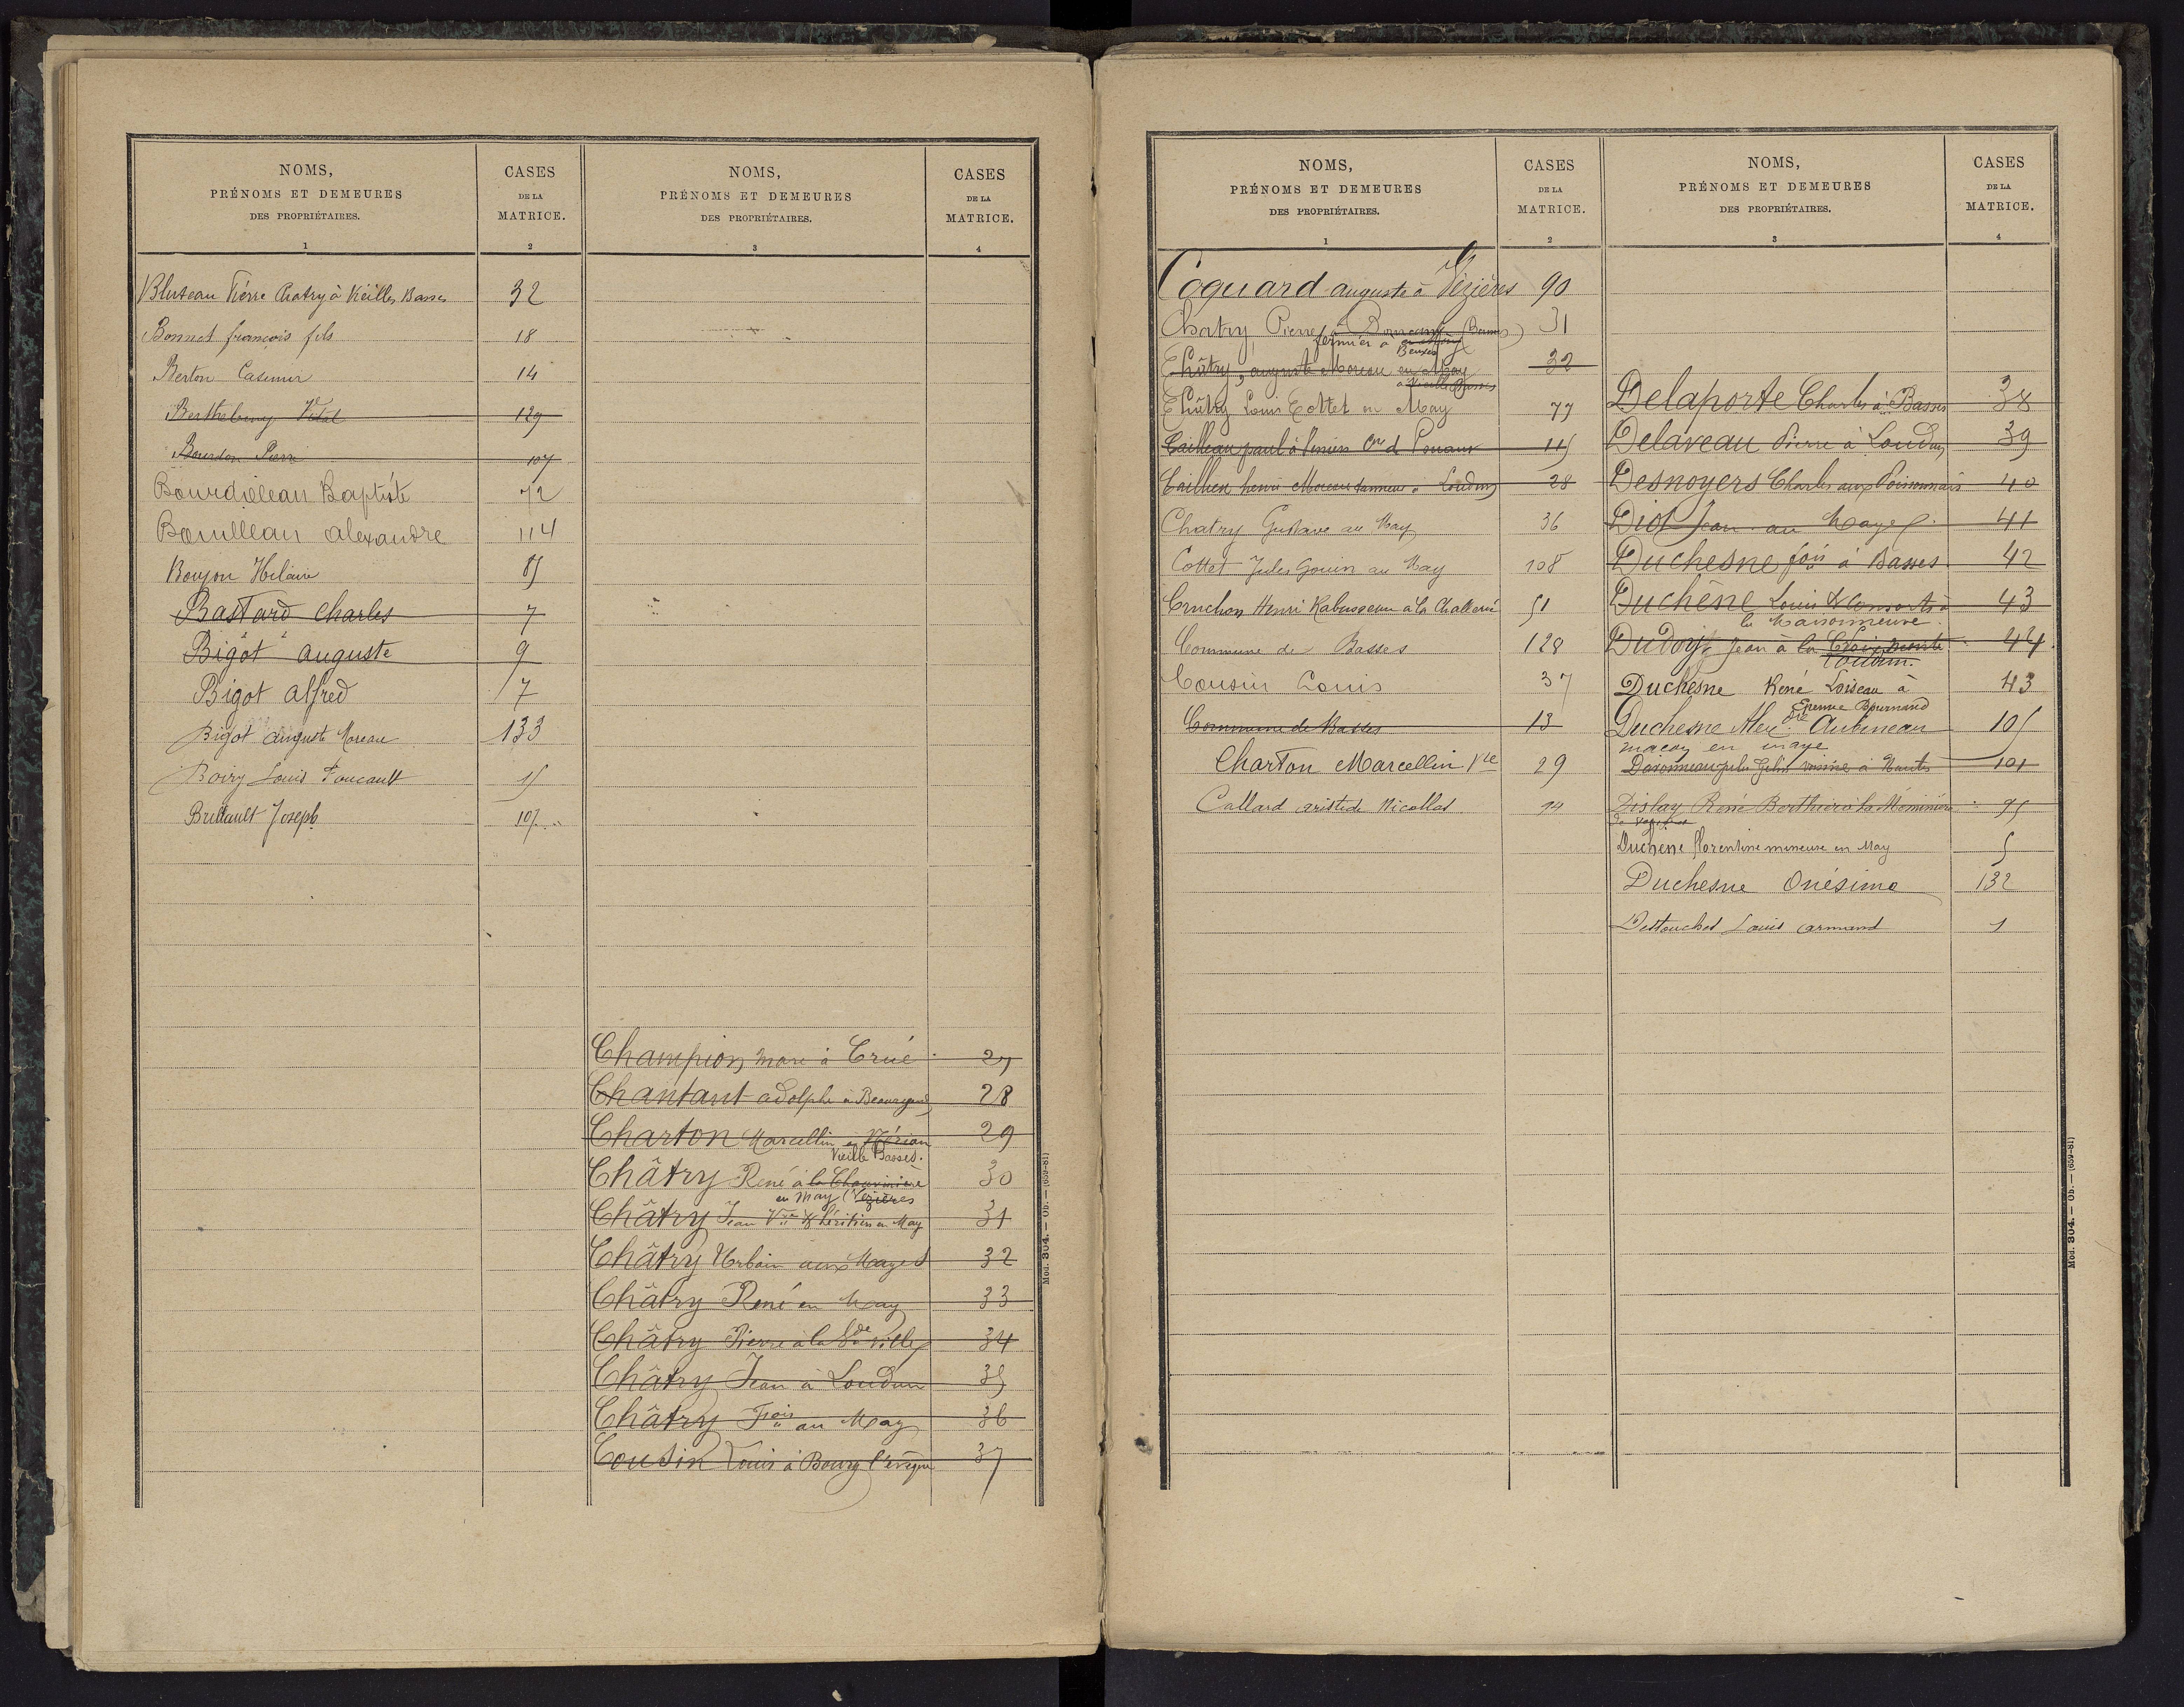 NOMS,
PRÉNOMS ET DEMEURES
DES PROPRIÉTAIRES.
1
CASES
DE LA
MATRICE.
2
Bluteau Pierre Chatry à Vieilles Basses 32
Bonnet françois fils 18
Berton Casimir 14
129
Bourdon Pierre 107
Bourdilleau Baptiste 72
Bourilleau alexandre 114
Boujou Hilaire 85
Bastard Charles 7
Bigot auguste 9
Bigot alfred 7
Bigot auguste Moreau 133
Boiry Louis Foucault 15
Brillault Joseph 107
NOMS,
PRÉNOMS ET DEMEURES
DES PROPRIÉTAIRES.
3
CASES
DE LA
MATRICE.
4
Champion marc à Crué 27
Chantant adolphe à Beauregard 28
Charton Marcellin à 29
Vieille Basses.
Châtry René à la Chauvinière 30
en May (Vézières
Châtry Jean Vve & héritiers en May 31
Châtry Urbain aux Mayes 32
Châtry René en May 33
Châtry Pierre à la Gde ville 34
Châtry Jean à Loudun 35
Châtry Fois au May 36
Cousin Louis à Bourg l'évêque 37
Mod. 304. — Ob. — (659-81)
NOMS,
PRÉNOMS ET DEMEURES
DES PROPRIÉTAIRES.
1
CASES
DE LA
MATRICE.
2
Coquard auguste à Vézières 90
Chatry Pierre 31
fermier à
Beuxes
Châtry, auguste Moreau en May 32
à Vieille Basses
Châtry Louis Cottet en May 77
Cailleau paul à 115
henri Moreau tanneur à Loudun 28
Chatry Gustave au May 36
Cottet Jules Gouin au May 108
Cruchon Henri Rabusseau à la Challerie 51
Commune de Basses 128
Cousin Louis 37
Commune de Basses 13
Charton Marcellin Vve 29
Callard aristide Nicollas 14
NOMS,
PRÉNOMS ET DEMEURES
DES PROPRIÉTAIRES.
3
CASES
DE LA
MATRICE.
4
Delaporte Charles à Basses 38
Delaveau Pierre à Loudun 39
Desnoyers Charles aux Poissonnais 40
Diot Jean au Mayes 41
Duchesne fois à Basses 42
Duchêne Louis & Consorts à 43
la Maisonneuve.
Jean à la 44
Loudun.
Duchesne René Loiseau à 43
Epenne Bournand
Duchesne Alexdre Aubineau 105
maçon en maye
101
Dislay René Berthier à la 95
Duchene florentine mineure en May 5
Duchesne Onésime 132
Destouches Louis armand 1
Mod. 304. — Ob. — (659-81)